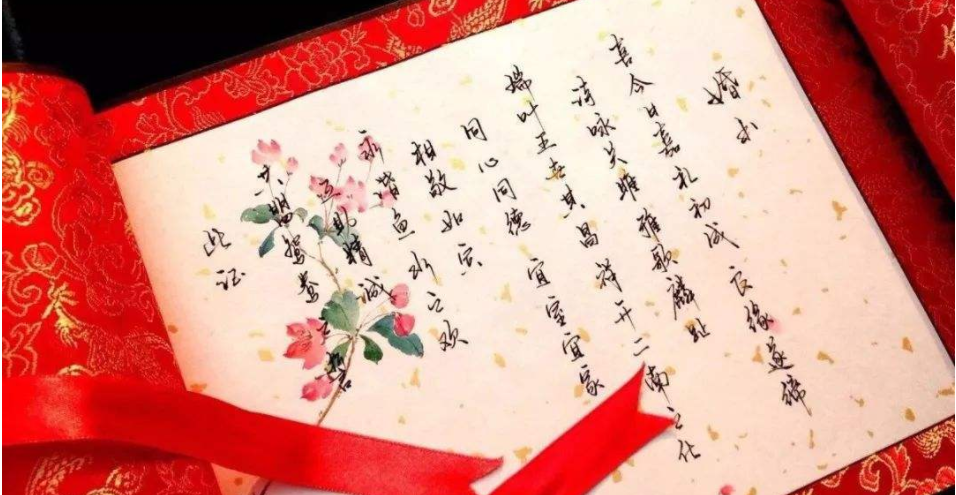 婚书
喜今日嘉礼初成良缘遂缔
诗咏关雎雅歌麟趾
瑞叶五世其昌祥开二南之化
同心同德宜室宜家
相敬如宾
永谐鱼水之欢
互助精诚
共盟鸳鸯之誓
此证